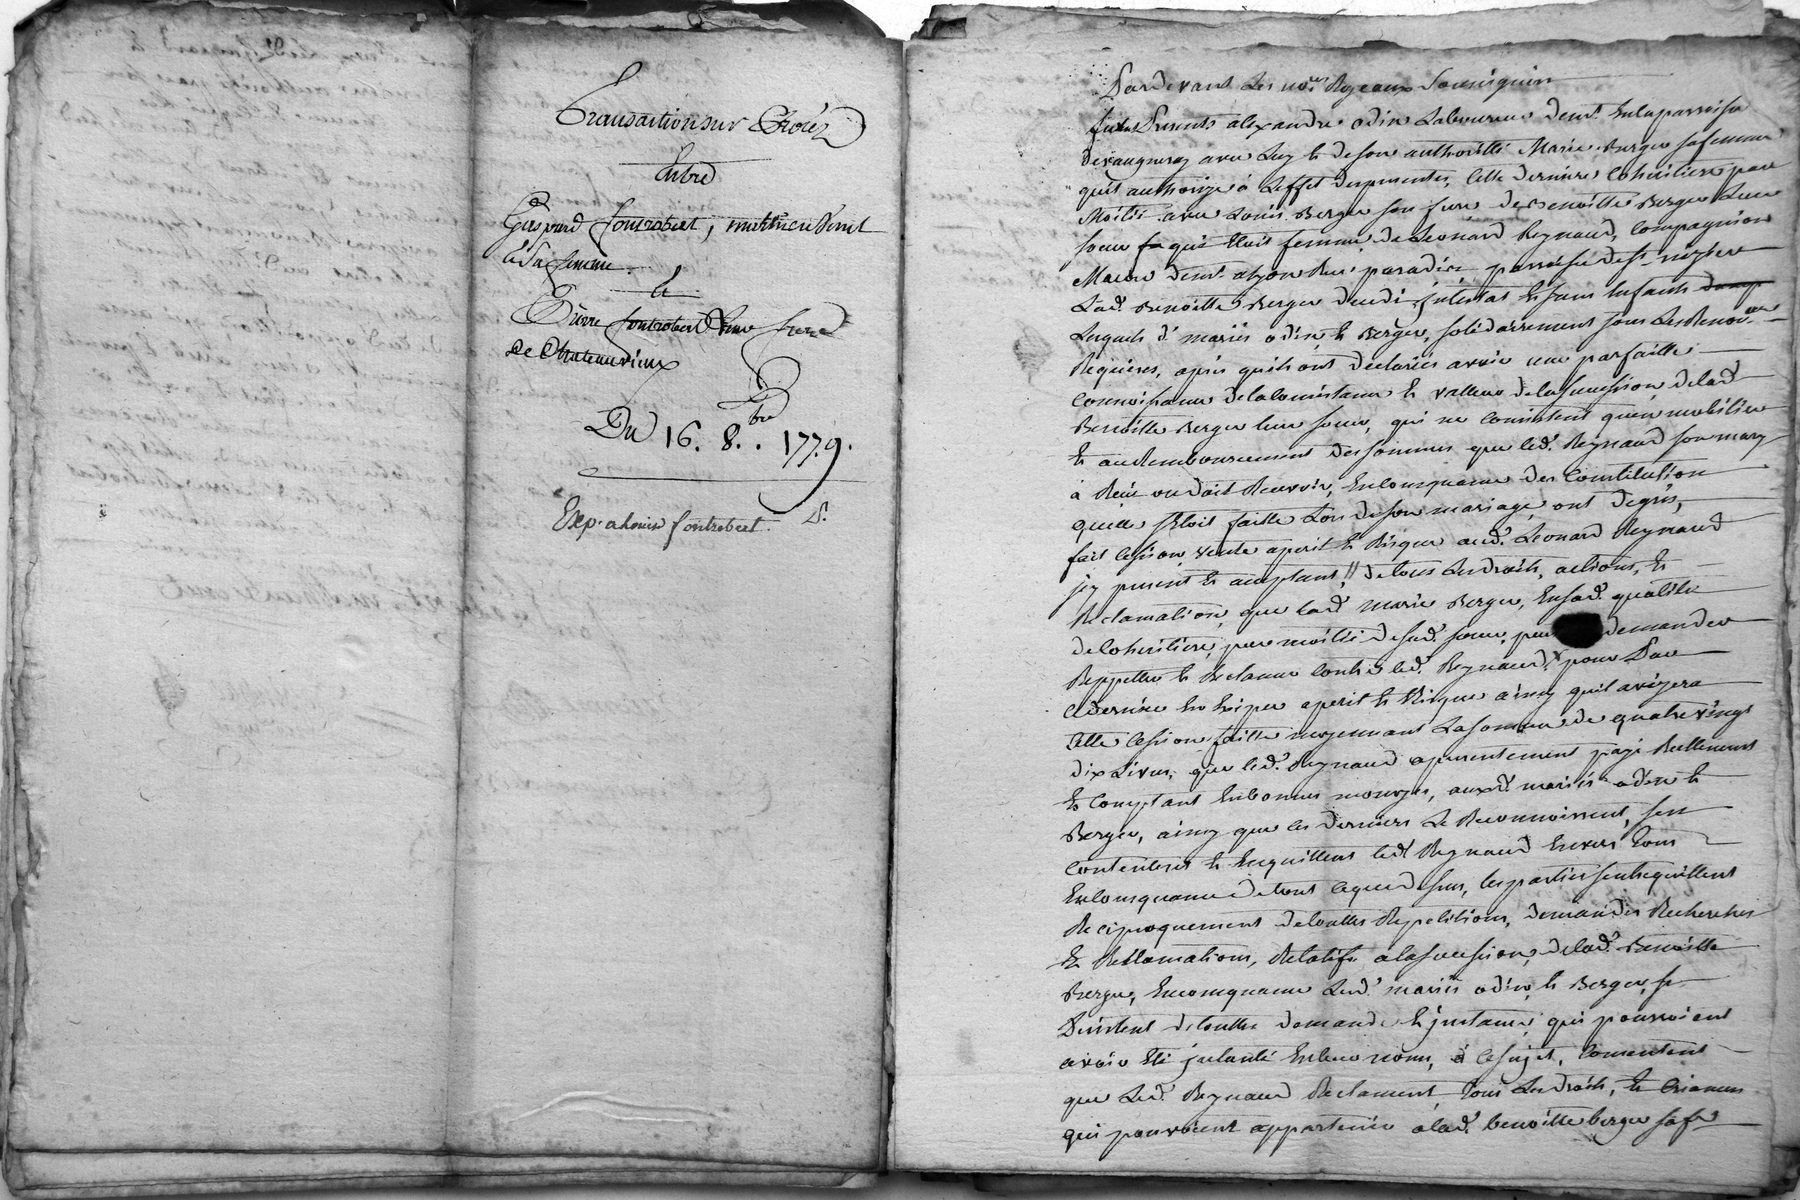 Transaction sur Procéz
Entre
Gaspard fontrobert, Mathieu
& Sa femme.
Et
Pierre fontrobert Leur frere
De Chateauvieux
Du 16. 8.bre 1779.
Exp. a Louis fontrobert.
Pardevant Les nores Royeaux Soussignés
furent Présents alexandre odin Laboureur demt. En la parroisse
de vaugneray avec Luy & de son authoritté Marie Berger sa femme
quil authorize a Leffet des presentes, Cette derniere Cohéritiere pour
Moitié avec Louis Berger son frere de Benoitte Berger Leur
soeur qui Etoit femme de Leonard Reynaud, Compagnion
Macon demt. a Lyon Rue paradix parroisse de st. nizier
Lad. Benoitte Berger decedée intestat & sans Enfants
Lesquels d. mariés odin & Berger, solidairement sous Les Renon.
Requises, après quils ont declarés avoir une parfaitte
Connoissance de la Consistance & valleur de la sucession de lad.
Benoitte Berger leur soeur, qui ne Consistent quen mobilier
& au Remboursement des sommes que led. Reynaud son mary
a Reçu ou doit Recevoir, En Consequance des Constitution
quelle s'Etoit faitte Lors de son mariage, ont de gré,
fait Cession, vente a peril & Risque aud. Leonard Reynaud
jcy present & acceptant, de tous Les droits, actions, &
Reclamation, que lad. Marie Berger, En sad. qualité
de Cohéritiere pour moitié de sad. soeur, peut demander
Reppetter & Reclamer Contre led. Reynaud, pour Par
Ce dernier En Exiper a peril & Risque ainsy quil avizera
Cette Cession faitte moyennant La somme de quatrevingt
dix Livres, que led. Reynaud a presentement payé Reellement
& Comptant En bonnes monoyes, auxd. mariés odin &
Berger, ainsy que ces derniers Le Reconnoissent, sen
Contentent & En quittent led. Reynaud Envers tous
En Consequance de tout ce que dessus, les parties sentrequittent
Reciproquement de touttes Repetitions, demandes Recherches
& Reclamations, Relatifs a la sucession de lad. Benoitte
Berger, En consequance Lesd. mariés odin, & Berger, se
Desistent de toutte demande & jnstance, qui pourroient
avoir Eté jntanté En leur noms, à ce sujet, Consentent
que Led. Reynaud Reclament tous Les droits, & Creances
qui pouvoient appartenir a lad. benoitte berger sa fe